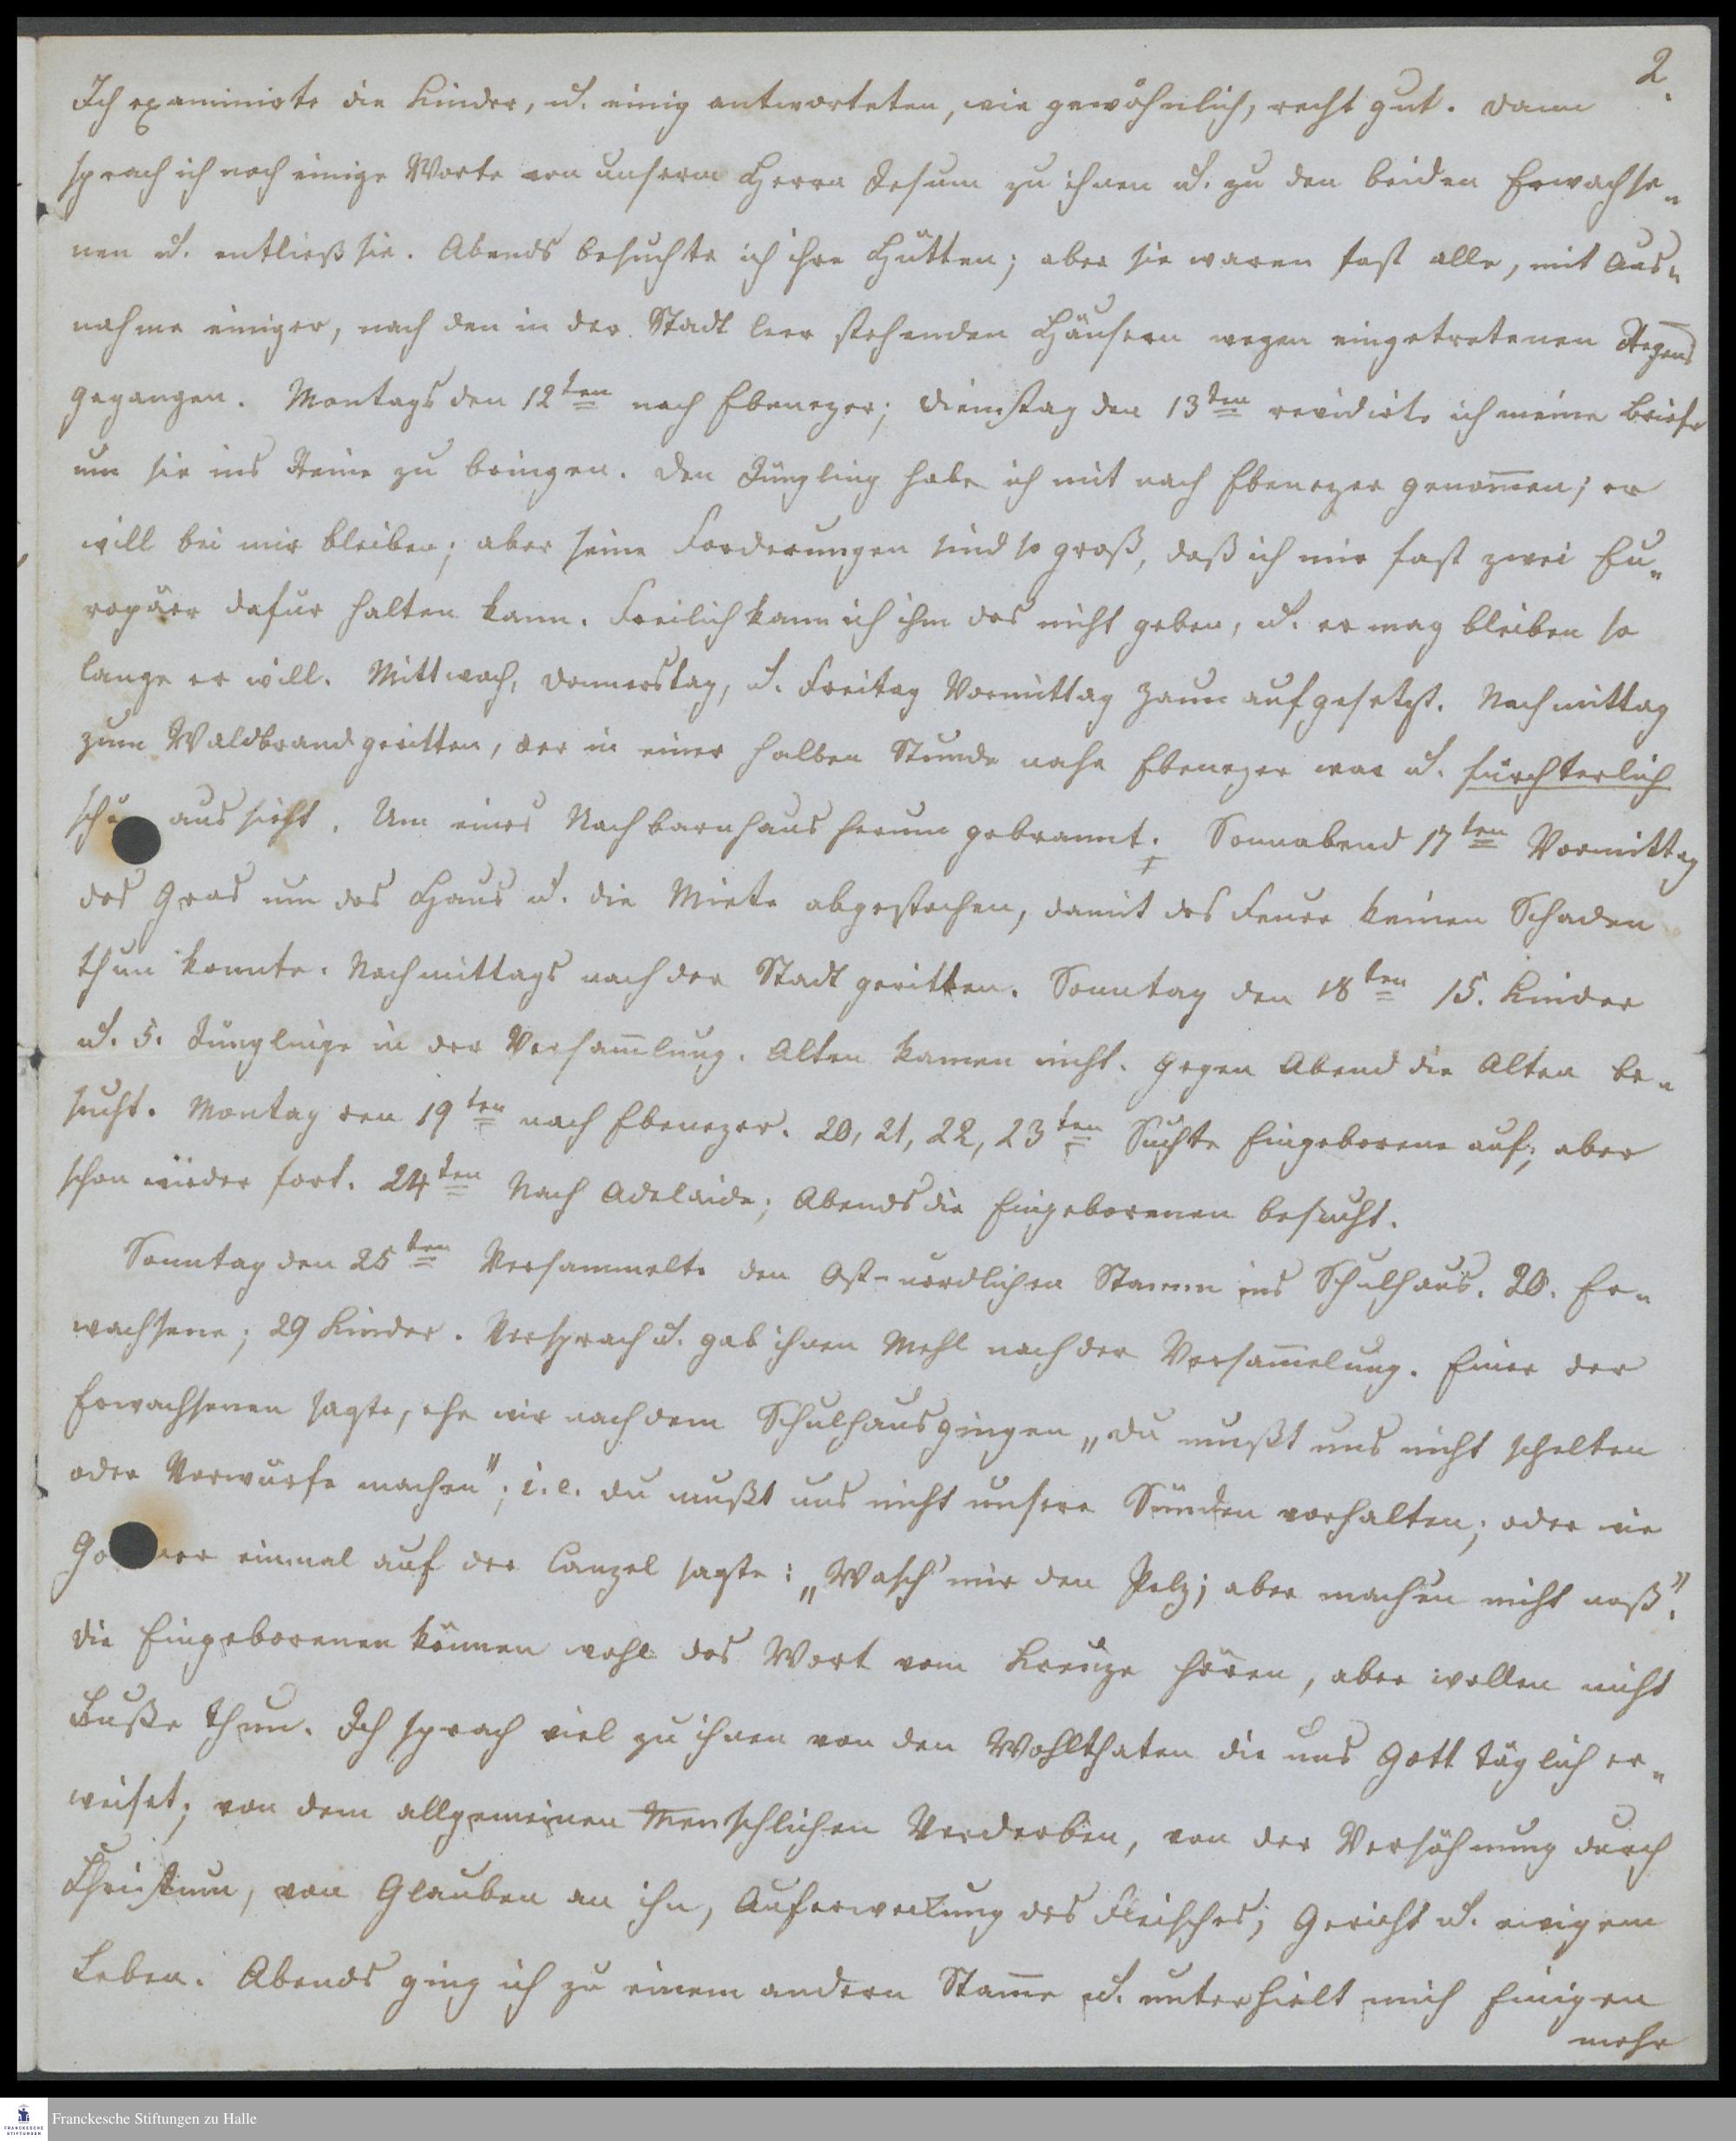 2.
Ich examinirte die Kinder, u. einig antworteten, wie gewöhnlich, recht gut. Dann
sprach ich noch einige Worte von unserm Herrn Jesum zu ihnen u. zu den beiden Erwachse„
nen u. entließ sie. Abends besuchte ich ihre Hütten; aber sie waren fast alle, mit Aus„
nahme einiger, nach den in der Stadt leer stehenden Häusern wegen eingetretenen Regens
gegangen. Montags den 12ten nach Ebenezer; Dienstag den 13ten revidirte ich meine Briefe
um sie ins Reine zu bringen. Den Jüngling habe ich mit nach Ebenezer genom̅en; er
will bei mir bleiben; aber seine Forderungen sind so groß, daß ich mir fast zwei Eu„
ropäer dafür halten kann. Freilich kann ich ihm das nicht geben, u. er mag bleiben so
lange er will. Mittwoch, Donnerstag, u. Freitag Vormittag Zaun aufgesetzt. Nachmittag
zum Waldbrand geritten, der in einer halben Stunde nahe Ebenezer war u. fürchterlich
aussieht. Um eines Nachbarnhaus herum gebrannt. Sonnabend 17ten Vormittag
das Gras um das Haus u. die Miete abgestochen, damit das Feuer keinen Schaden
thun konnte. Nachmittags nach der Stadt geritten. Sonntag den 18ten 15. Kinder
u. 5. Jünglinge in der Versam̅lung. Alten kamen nicht. Gegen Abend die Alten be„
sucht. Montag den 19ten nach Ebenezer. 20, 21, 22, 23ten Suchte Eingeborene auf; aber
schon wieder fort. 24ten Nach Adelaide; Abends die Eingeborenen besucht.
Sonntag den 25ten Versammelte den Ost-nördlichen Stamm ins Schulhaus. 20. Er„
wachsene; 29 Kinder. Versprach u. gab ihnen Mehl nach der Versam̅elung. Einer der
Erwachsenen sagte, ehe wir nach dem Schulhaus gingen „du mußt uns nicht schelten
oder Vorwürfe machen"; i.e. du mußt uns nicht unsere Sünden vorhalten; oder wie
einmal auf der Canzel sagte: „Wasch' mir den Pelz; aber mach'en nicht naß".
Die Eingeborenen können wohl das Wort vom Kreuze hören, aber wollen nicht
Buße thun. Ich sprach viel zu ihnen von den Wohlthaten die uns Gott täglich er„
weiset; von dem allgemeinen Menschlichen Verderben, von der Versöhnung durch
Christum, von Glauben an ihn, Auferweckung des Fleisches, Gericht u. ewigem
Leben. Abends ging ich zu einem andern Stam̅e u. unterhielt mich Einigen
mehr
Franckesche Stiftungen zu Halle
FRANCKESCHE
STIFTUNGEN